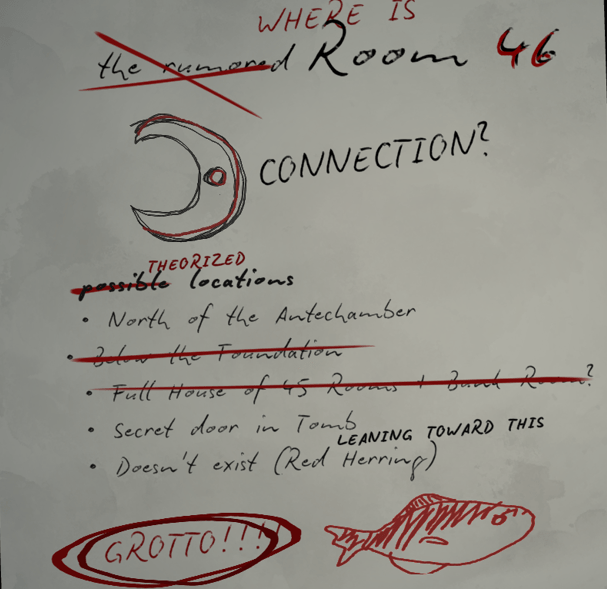 WHERE IS
the rumored Room 46
CONNECTION?
THEORIZED
possible locations
• North of the Antechamber
• Below the Foundation
• Full House of 45 Rooms + Bunk Room?
• Secret door in Tomb
LEANING TOWARD THIS
• Doesn't exist (Red Herring)
GROTTO!!!!